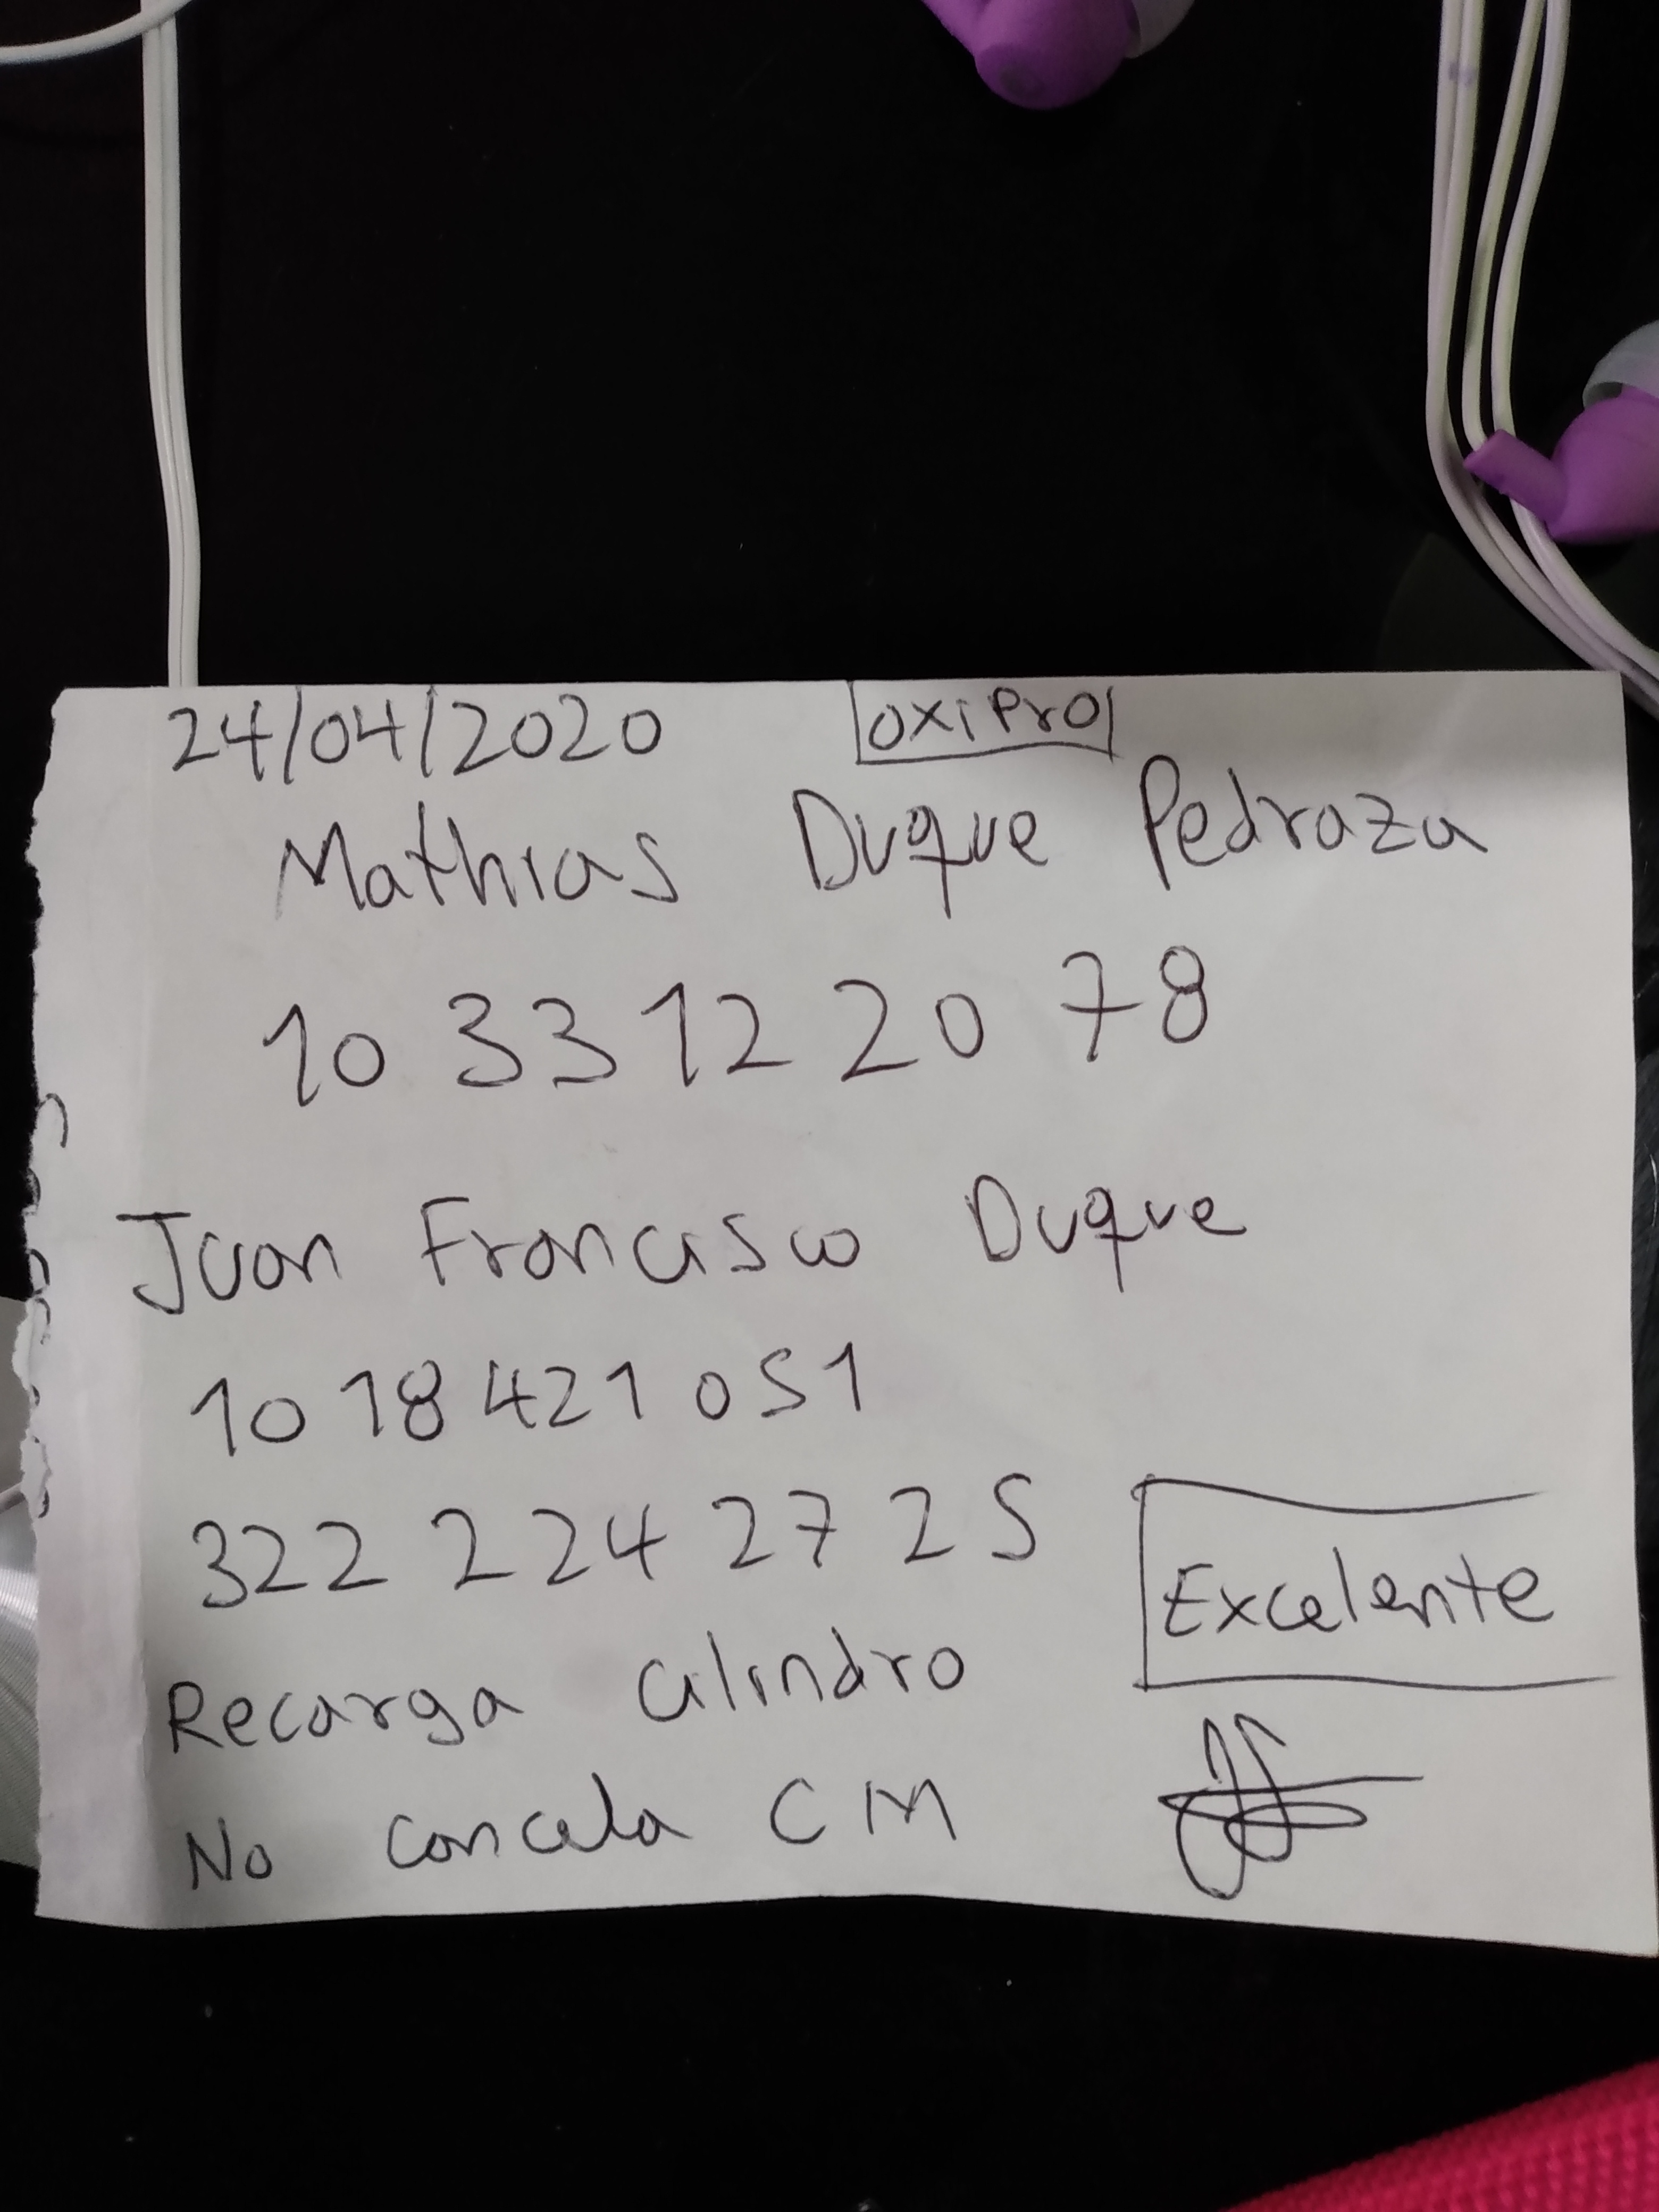 24/04/2020 oxipro
Mathias Duque Pedraza
10 33 12 20 78
Juan Francisco Duque
10 18 421 051
322 224 27 25
Excelente
Recarga cilindro
No cancela CM